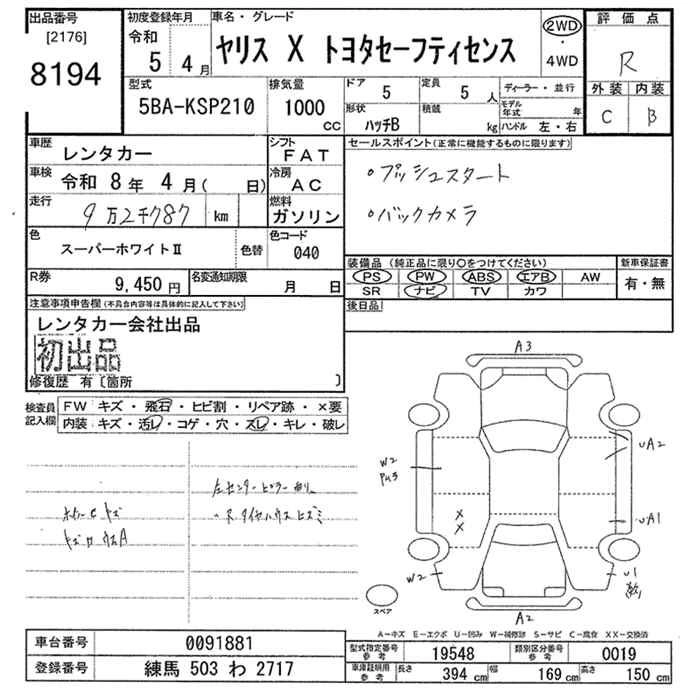 出品番号
[2176]
8194
初度登録年月
令和
5 4月
車名・グレード
ヤリス X トヨタセーフティセンス
2WD
・
4WD
評価点
R
外装 内装
C B
型式
5BA-KSP210
排気量
1000
CC
ドア
5
定員
5人
形状
ハッチB
積載
kg
ディーラー・並行
モデル年式 年
ハンドル 左・右
車歴
レンタカー
シフト
FAT
車検
令和 8年 4月( 日)
冷房
AC
走行
9万2千787 km
燃料
ガソリン
色
スーパーホワイトⅡ
色替
色コード
040
R券
9,450円
名変通知期限
月 日
セールスポイント(正常に機能するものに限ります)
。プッシュスタート
。バックカメラ
装備品(純正品に限り○をつけてください)
PS PW ABS エアB AW
SR ナビ TV カワ
新車保証書
有・無
後日品
注意事項申告欄(不具合内容等は具体的に記入して下さい)
レンタカー会社出品
初出品
修復歴 有〔箇所 〕
検査員記入欄
FW キズ・飛石・ヒビ割・リペア跡・×要
内装 キズ・汚レ・コゲ・穴・スレ・キレ・破レ
A3
W2
UA2
UA1
X
X
W2
U1
A2
スペア
A-キズ E-エクボ U-凹み W-補修跡 S-サビ C-腐食 XX-交換済
車台番号
0091881
登録番号
練馬 503 わ 2717
型式指定番号
参考
19548
類別区分番号
参考
0019
車庫証明用
参考
長さ
394 cm
幅
169 cm
高さ
150 cm